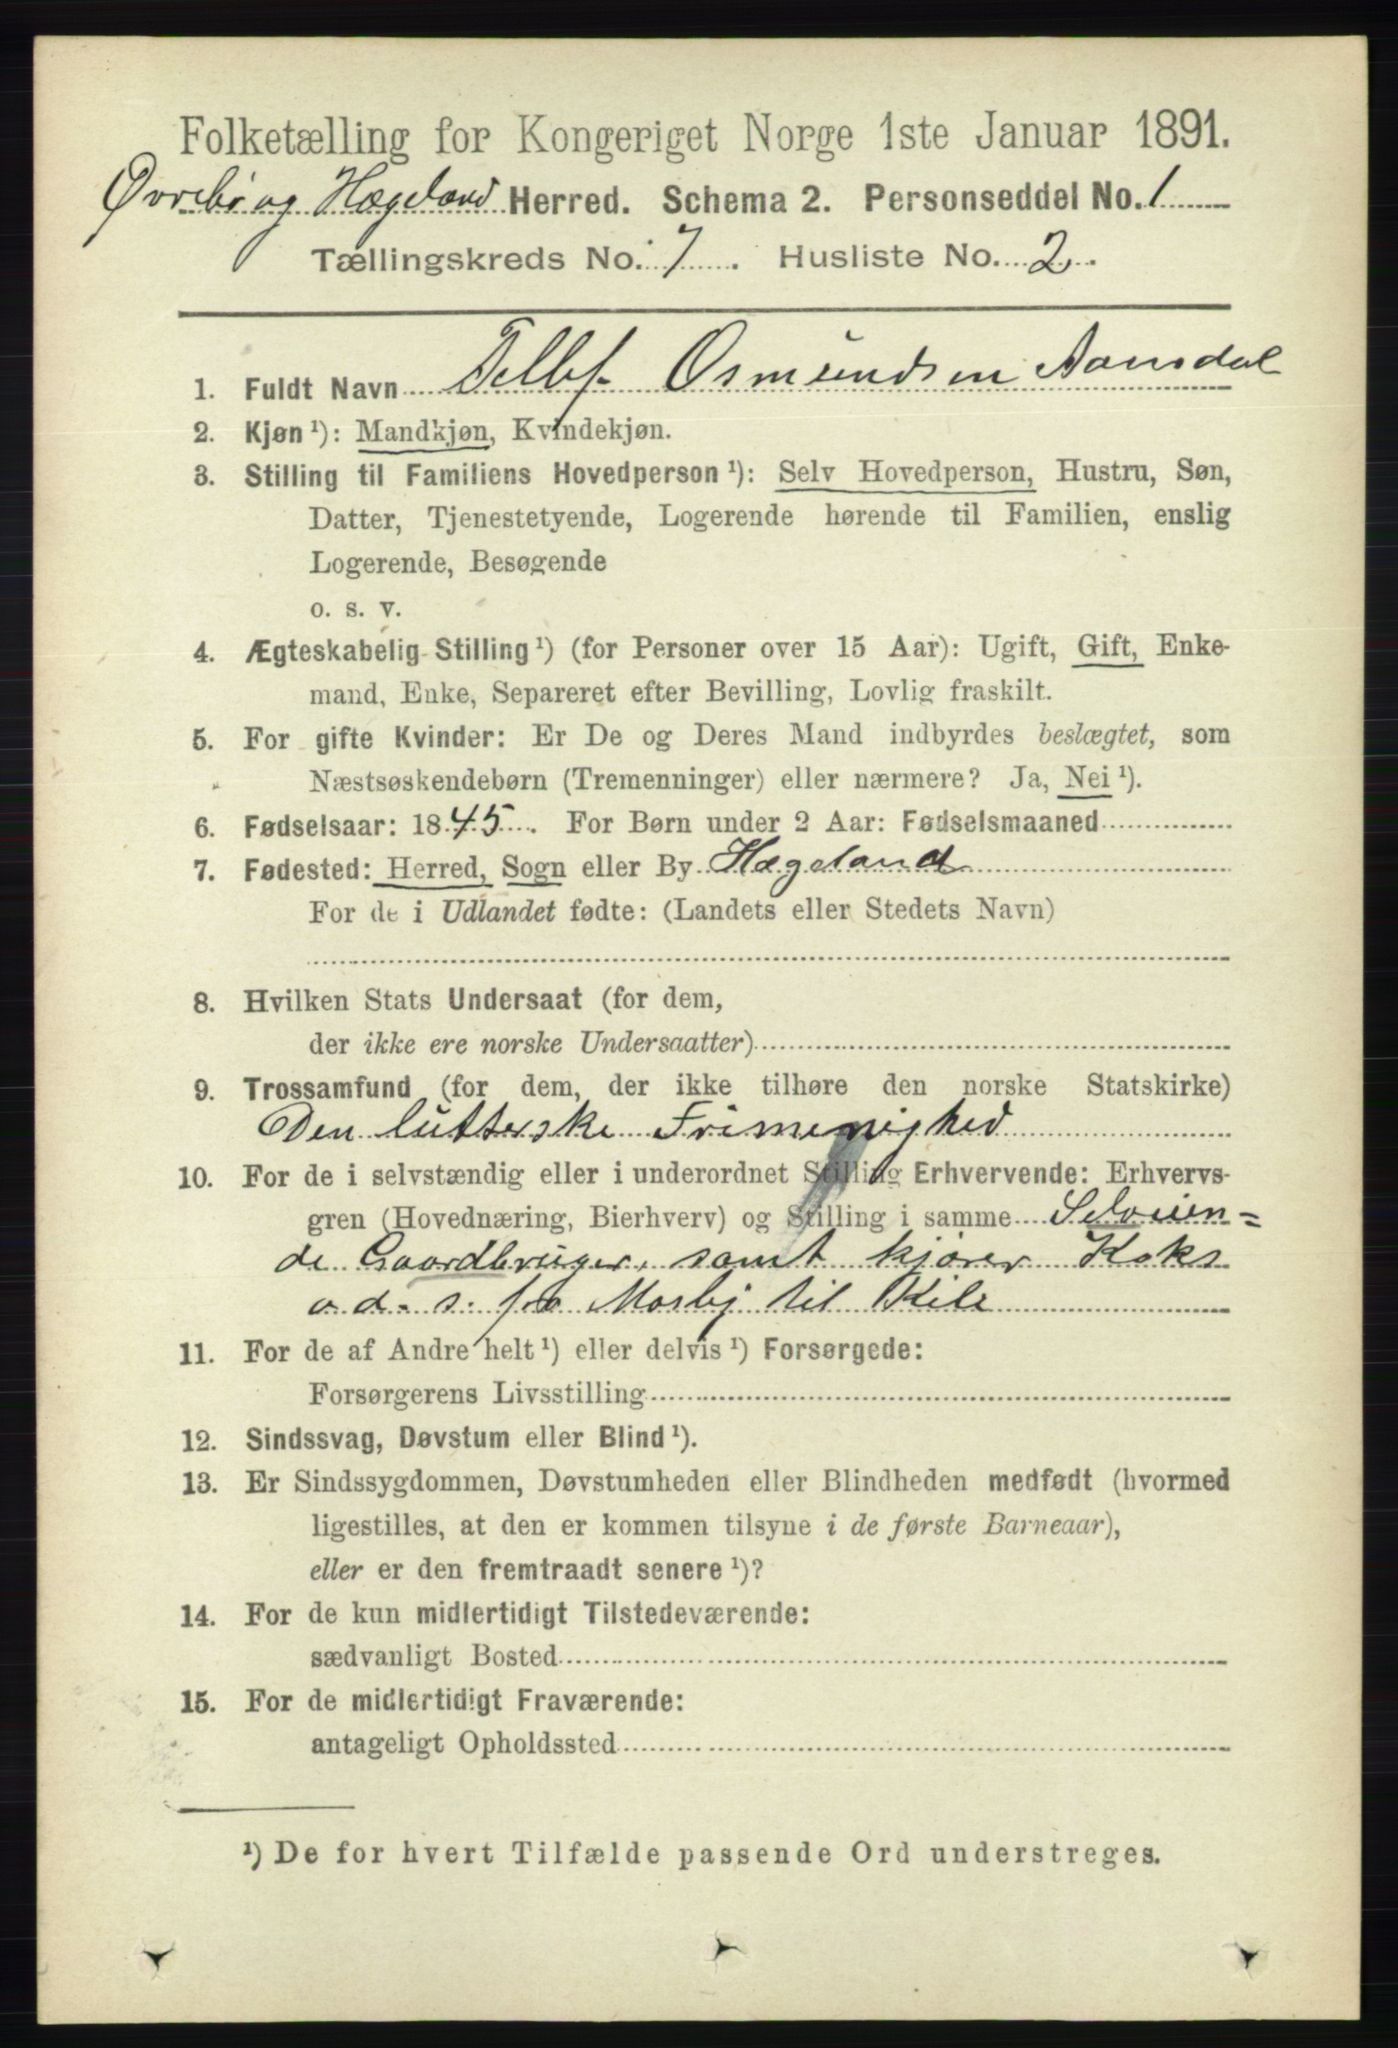 Folketælling for Kongeriget Norge 1ste Januar 1891.
Øvrebø og Hægeland Herred. Schema 2. Personseddel No. 1
Tællingskreds No. 7. Husliste No. 2.
1. Fuldt Navn Tellef Osmundsen Aamdal
2. Kjøn ¹): Mandkjøn, Kvindekjøn.
3. Stilling til Familiens Hovedperson ¹): Selv Hovedperson, Hustru, Søn,
Datter, Tjenestetyende, Logerende hørende til Familien, enslig
Logerende, Besøgende
o. s. v.
4. Ægteskabelig Stilling ¹) (for Personer over 15 Aar): Ugift, Gift, Enke-
mand, Enke, Separeret efter Bevilling, Lovlig fraskilt.
5. For gifte Kvinder: Er De og Deres Mand indbyrdes beslægtet, som
Næstsøskendebørn (Tremenninger) eller nærmere? Ja, Nei ¹).
6. Fødselsaar: 1845. For Børn under 2 Aar: Fødselsmaaned
7. Fødested: Herred, Sogn eller By Hægeland
For de i Udlandet fødte: (Landets eller Stedets Navn)
8. Hvilken Stats Undersaat (for dem,
der ikke ere norske Undersaatter)
9. Trossamfund (for dem, der ikke tilhøre den norske Statskirke)
Den lutterske Frimenighed
10. For de i selvstændig eller i underordnet Stilling Erhvervende: Erhvervs-
gren (Hovednæring, Bierhverv) og Stilling i samme Selveien=
de Gaardbruger, samt kjører Koks
o. d. s. fra Mosbj til Kile
11. For de af Andre helt ¹) eller delvis ¹) Forsørgede:
Forsørgerens Livsstilling
12. Sindssvag, Døvstum eller Blind ¹).
13. Er Sindssygdommen, Døvstumheden eller Blindheden medfødt (hvormed
ligestilles, at den er kommen tilsyne i de første Barneaar),
eller er den fremtraadt senere ¹)?
14. For de kun midlertidigt Tilstedeværende:
sædvanligt Bosted
15. For de midlertidigt Fraværende:
antageligt Opholdssted
¹) De for hvert Tilfælde passende Ord understreges.